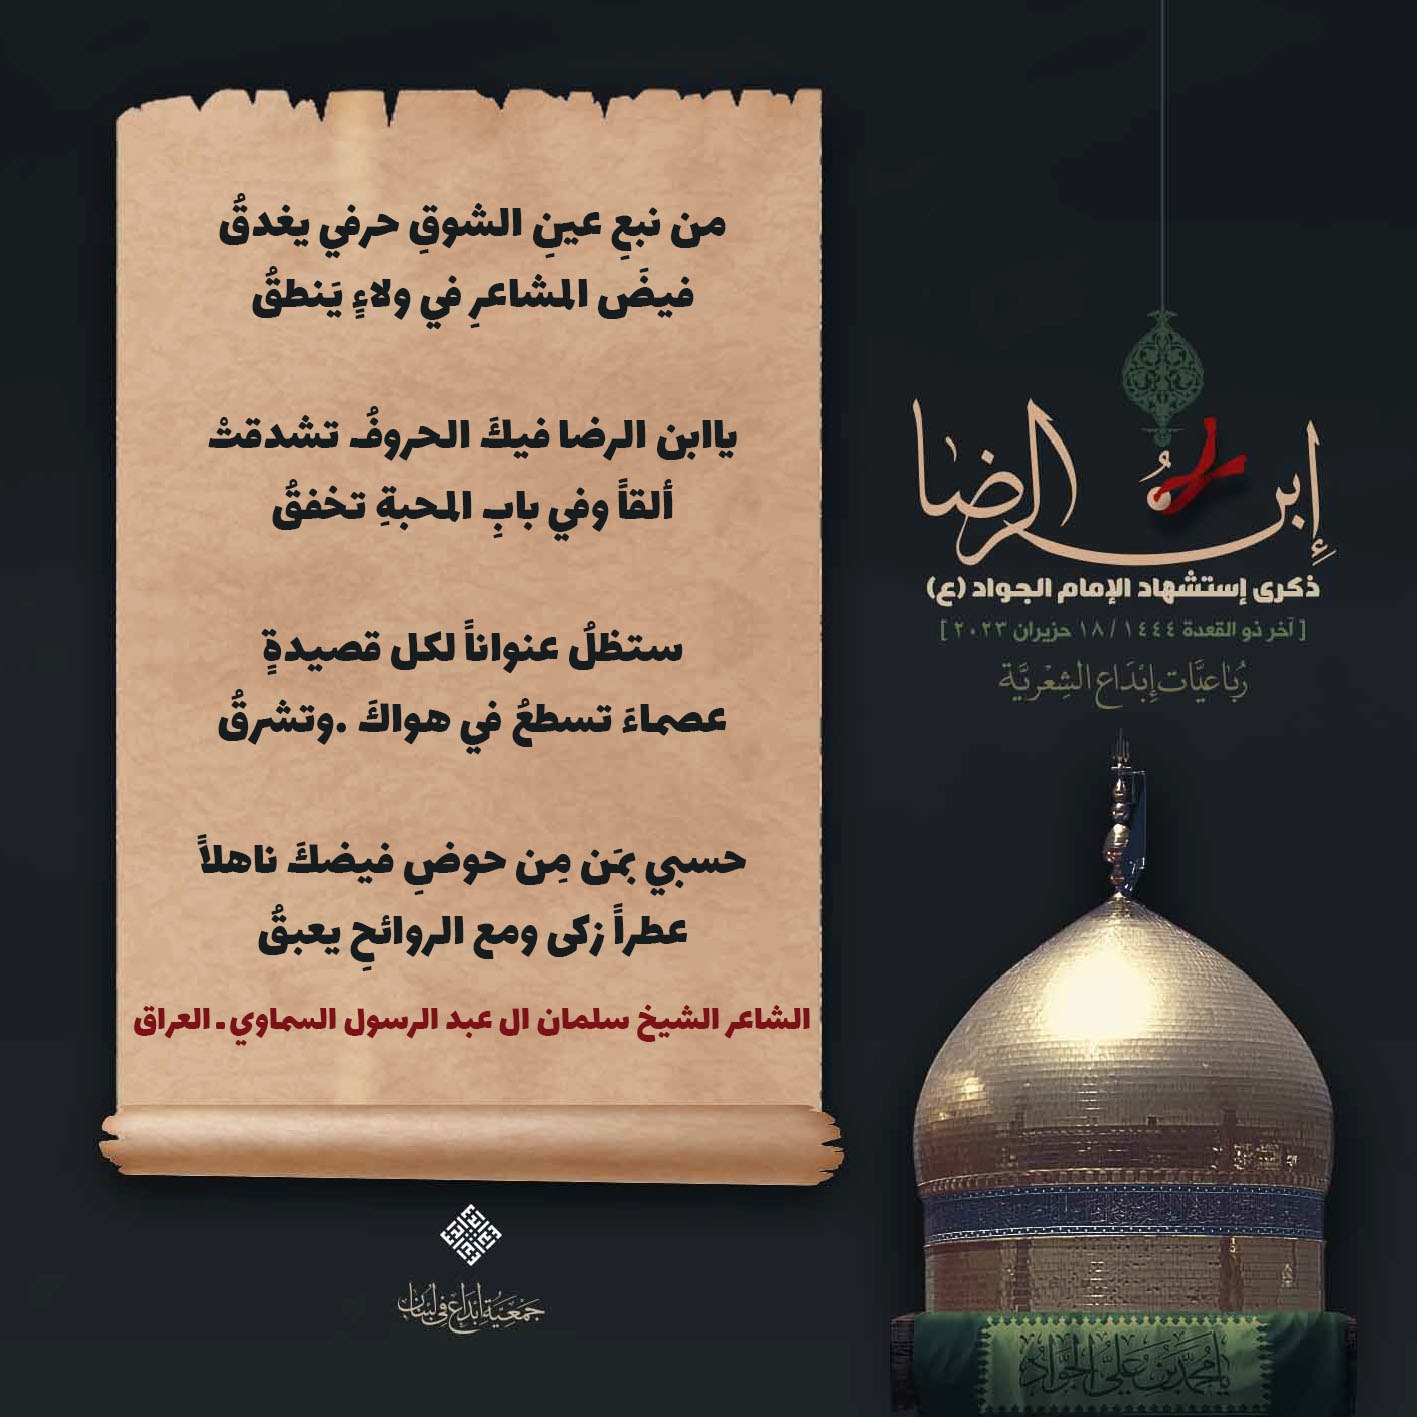 من نبعِ عينِ الشوقِ حرفي يغدقُ
فيضَ المشاعرِ في ولاءٍ يَنطقُ
ياابن الرضا فيكَ الحروفُ تشدقتْ
ألقاً وفي بابِ المحبةِ تخفقُ
ستظلُ عنواناً لكل قصيدةٍ
عصماءَ تسطعُ في هواكَ .وتشرقُ
حسبي بمَن مِن حوضِ فيضكَ ناهلاً
عطراً زكى ومع الروائحِ يعبقُ
الشاعر الشيخ سلمان ال عبد الرسول السماوي - العراق
إبن الرضا
ذكرى إستشهاد الإمام الجواد (ع)
[ آخر ذو القعدة ١٤٤٤ / ١٨ حزيران ٢٠٢٣ ]
رُبَاعيَّات إبْدَاع الشِعْريَّة
يا محمد بن علي الجواد
جمعية إبداع في لبنان